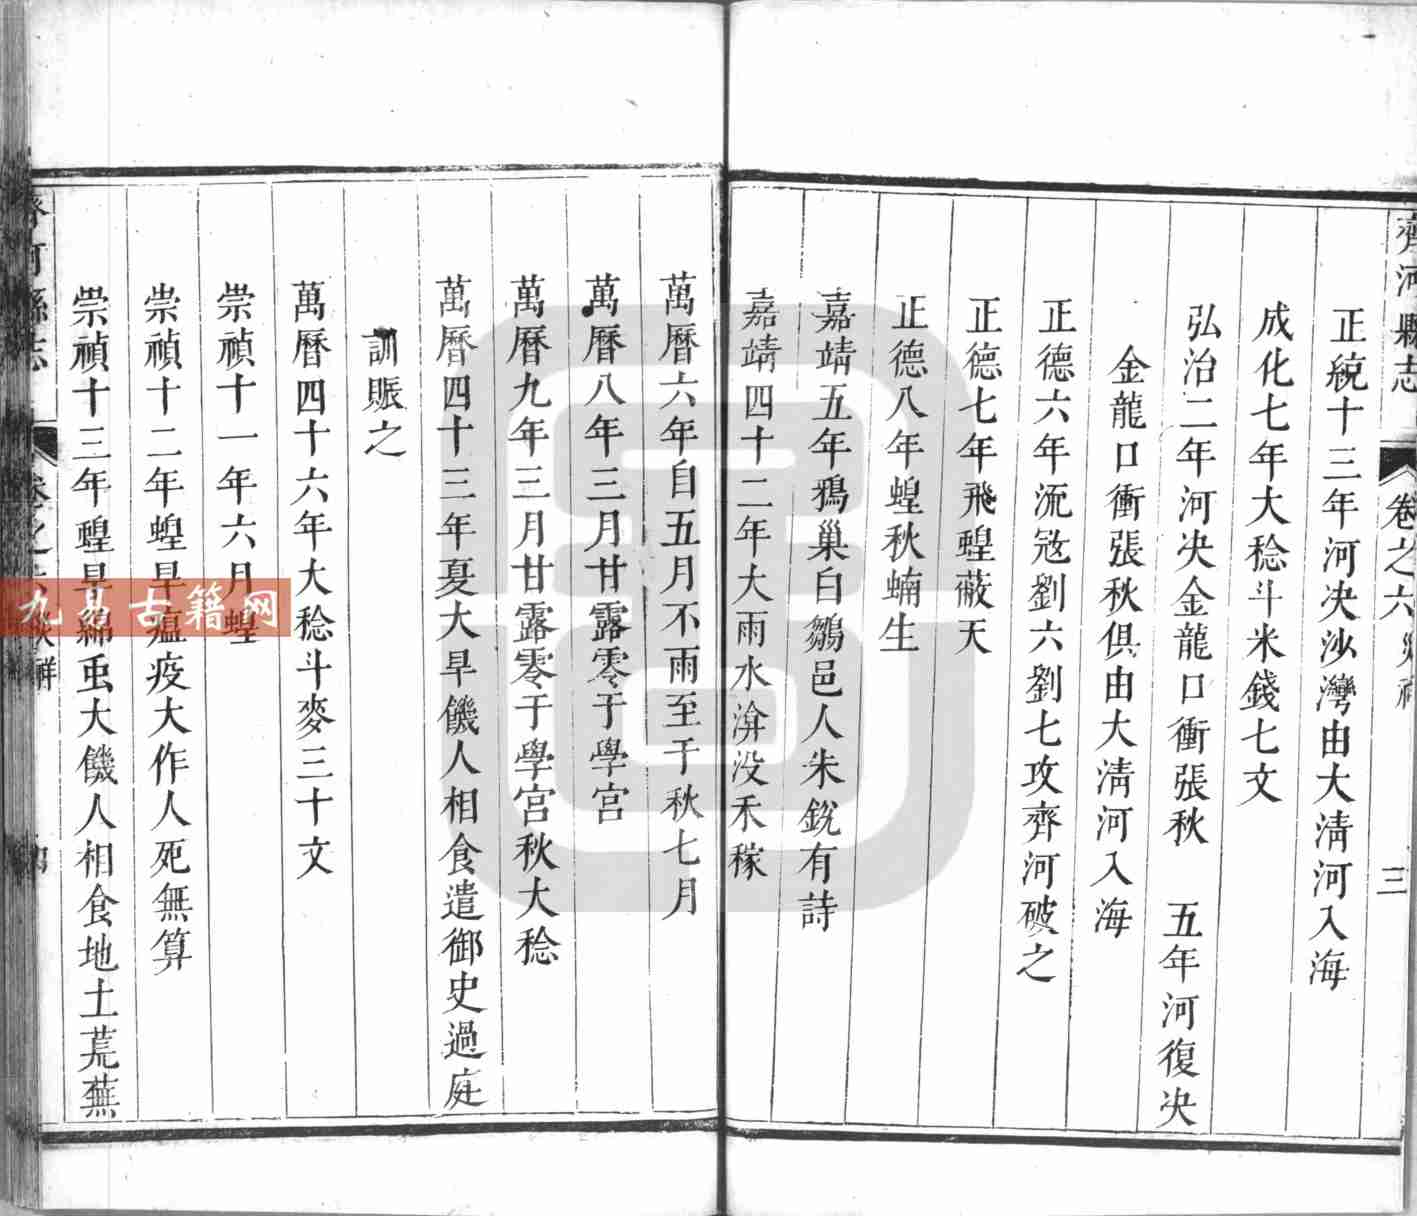 齊河縣志
卷之六
三
正統十三年河决沙灣由大淸河入海
成化七年大稔斗米錢七文
弘治二年河决金龍口衝張秋　五年河復决
金龍口衝張秋俱由大淸河入海
正德六年流宼劉六劉七攻齊河破之
正德七年飛蝗蔽天
正德八年蝗秋蝻生
嘉靖五年鴉巢白鶵邑人朱銳有詩
嘉靖四十二年大雨水渰没禾稼
萬曆六年自五月不雨至于秋七月
萬曆八年三月甘露零于學宮
萬曆九年三月甘露零于學宮秋大稔
萬曆四十三年夏大旱饑人相食遣御史過庭
訓賑之
萬曆四十六年大稔斗麥三十文
崇禎十一年六月蝗
崇禎十二年蝗旱瘟疫大作人死無算
崇禎十三年蝗旱綿虫大饑人相食地土荒蕪
九易古籍网